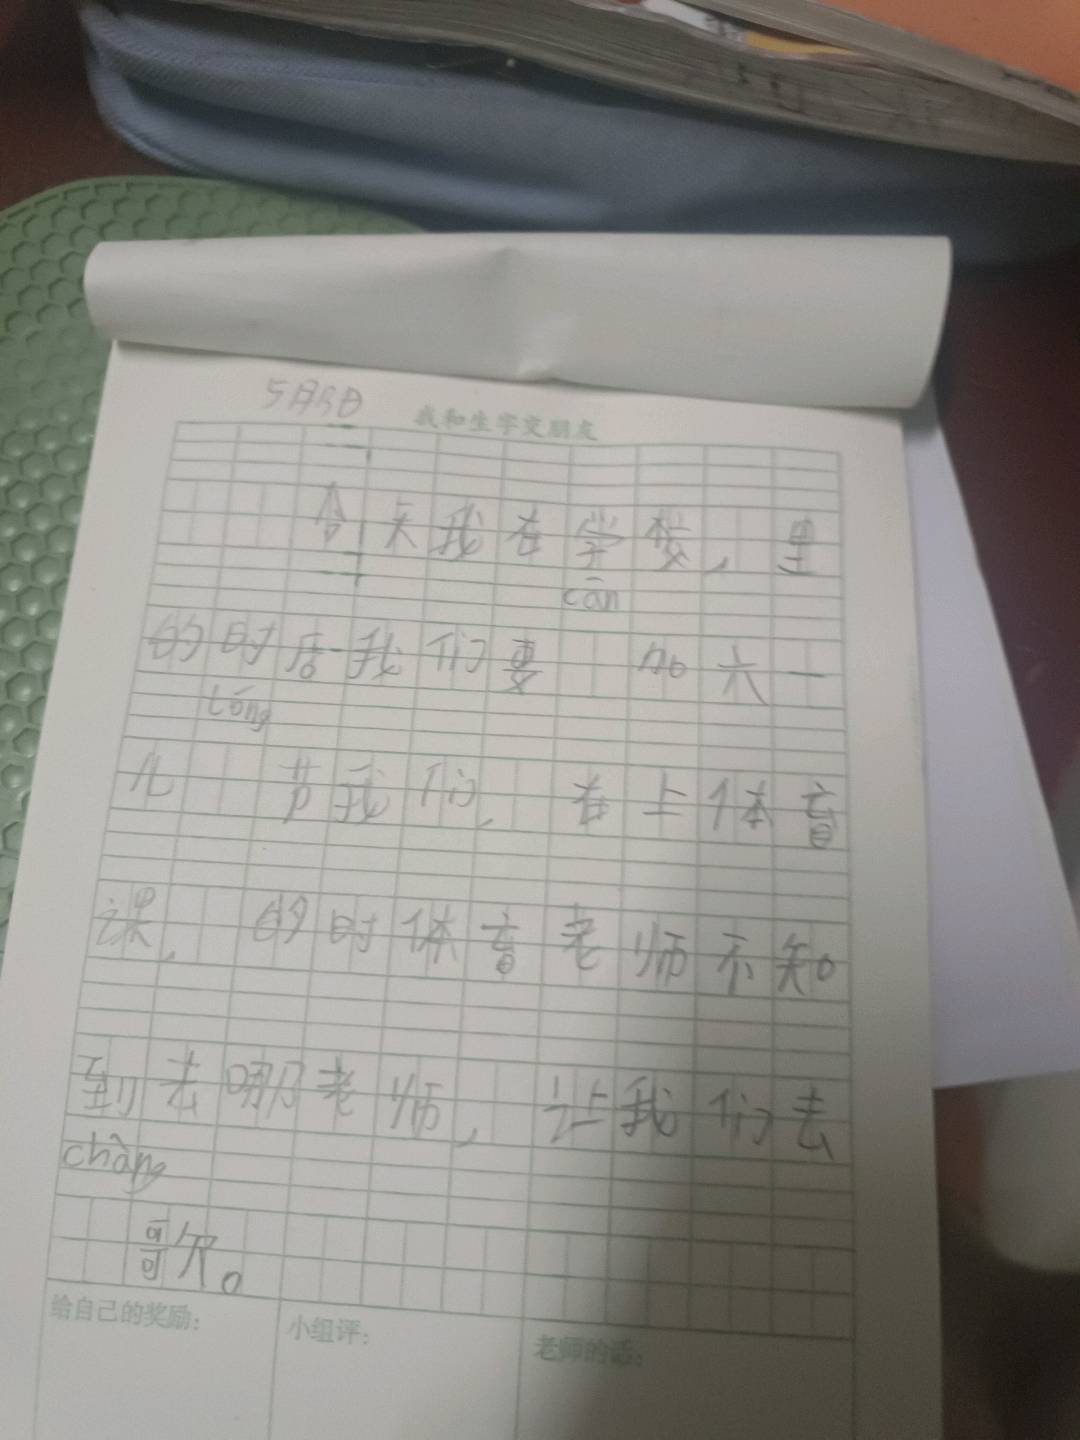 5月5日
我和生字交朋友
今天我在学校,里
cān
的时居我们要 加六一
tóng
儿 节我们,在上体育
课,的时体育老师不知
到去哪老师,让我们去
chàng
哥欠。
给自己的奖励: 小组评: 老师的话: